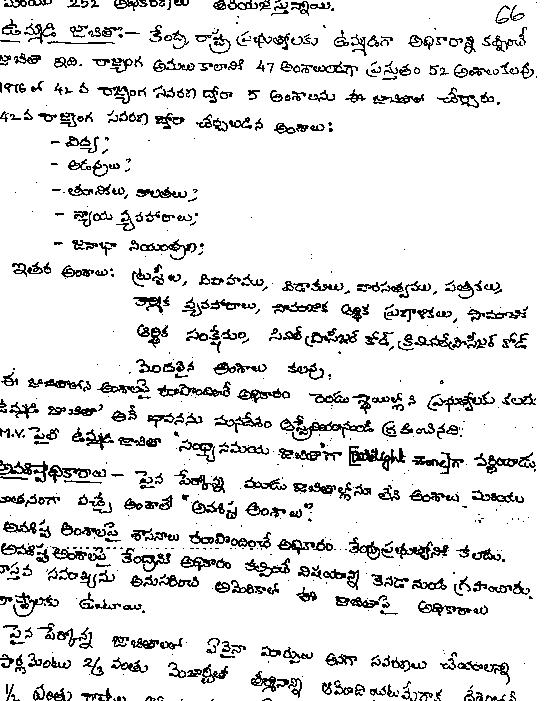 66
మరియు 252 అధికరణలు తెలియజేస్తున్నాయి.
ఉమ్మడి జాబితా:- కేంద్ర, రాష్ట్ర ప్రభుత్వాలకు ఉమ్మడిగా అధికారాన్ని కల్పించే
జాబితా ఇది. రాజ్యాంగ అమలు కాలానికి 47 అంశాలుండగా ప్రస్తుతం 52 అంశాలు కలవు.
1976 లో 42 వ రాజ్యాంగ సవరణ ద్వారా 5 అంశాలను ఈ జాబితాలో చేర్చారు.
42 వ రాజ్యాంగ సవరణ ద్వారా చేర్చబడిన అంశాలు:
- విద్య;
- అడవులు;
- తూనికలు, కొలతలు;
- న్యాయ వ్యవహారాలు;
- జనాభా నియంత్రణ;
ఇతర అంశాలు: ట్రస్టీలు, వివాహము, విడాకులు, వారసత్వము, పత్రికలు,
కార్మిక వ్యవహారాలు, సామాజిక ఆర్థిక ప్రణాళికలు, సామాజిక
ఆర్థిక సంక్షేమం, సివిల్ ప్రొసీజర్ కోడ్, క్రిమినల్ ప్రొసీజర్ కోడ్
మొదలైన అంశాలు కలవు.
ఈ జాబితాలోని అంశాలపై రూపొందించే అధికారం రెండు స్థాయిల్లోని ప్రభుత్వాలకు కలదు
ఉమ్మడి జాబితా అనే భావనను మనదేశం ఆస్ట్రేలియా నుండి గ్రహించినది.
M.V. పైలీ ఉమ్మడి జాబితా "సంధ్యా సమయ జాబితా"గా [Twilight] గా వర్ణించాడు.
అవశిష్టాధికారాలు - పైన పేర్కొన్న మూడు జాబితాల్లోనూ లేని అంశాలు మరియు
నూతనంగా వచ్చే అంశాలే "అవశిష్ట అంశాలు".
అవశిష్ట అంశాలపై శాసనాలు రూపొందించే అధికారం కేంద్ర ప్రభుత్వానికే కలదు.
అవశిష్ట అంశాలపై కేంద్రానికి అధికారం కల్పించే విషయాన్ని కెనడా నుండి గ్రహించారు.
వాస్తవ సమాఖ్యను అనుసరించి అమెరికాలో ఈ జాబితాపై అధికారాలు
రాష్ట్రాలకు ఉంటాయి.
పైన పేర్కొన్న జాబితాలలో ఏవైనా మార్పులు అనగా సవరణలు చేయాలన్నా
పార్లమెంటు 2/3 వంతు మెజార్టీతో తీర్మానాన్ని ఆమోదించటమేగాక
1/2 వంతు రాష్ట్రాల